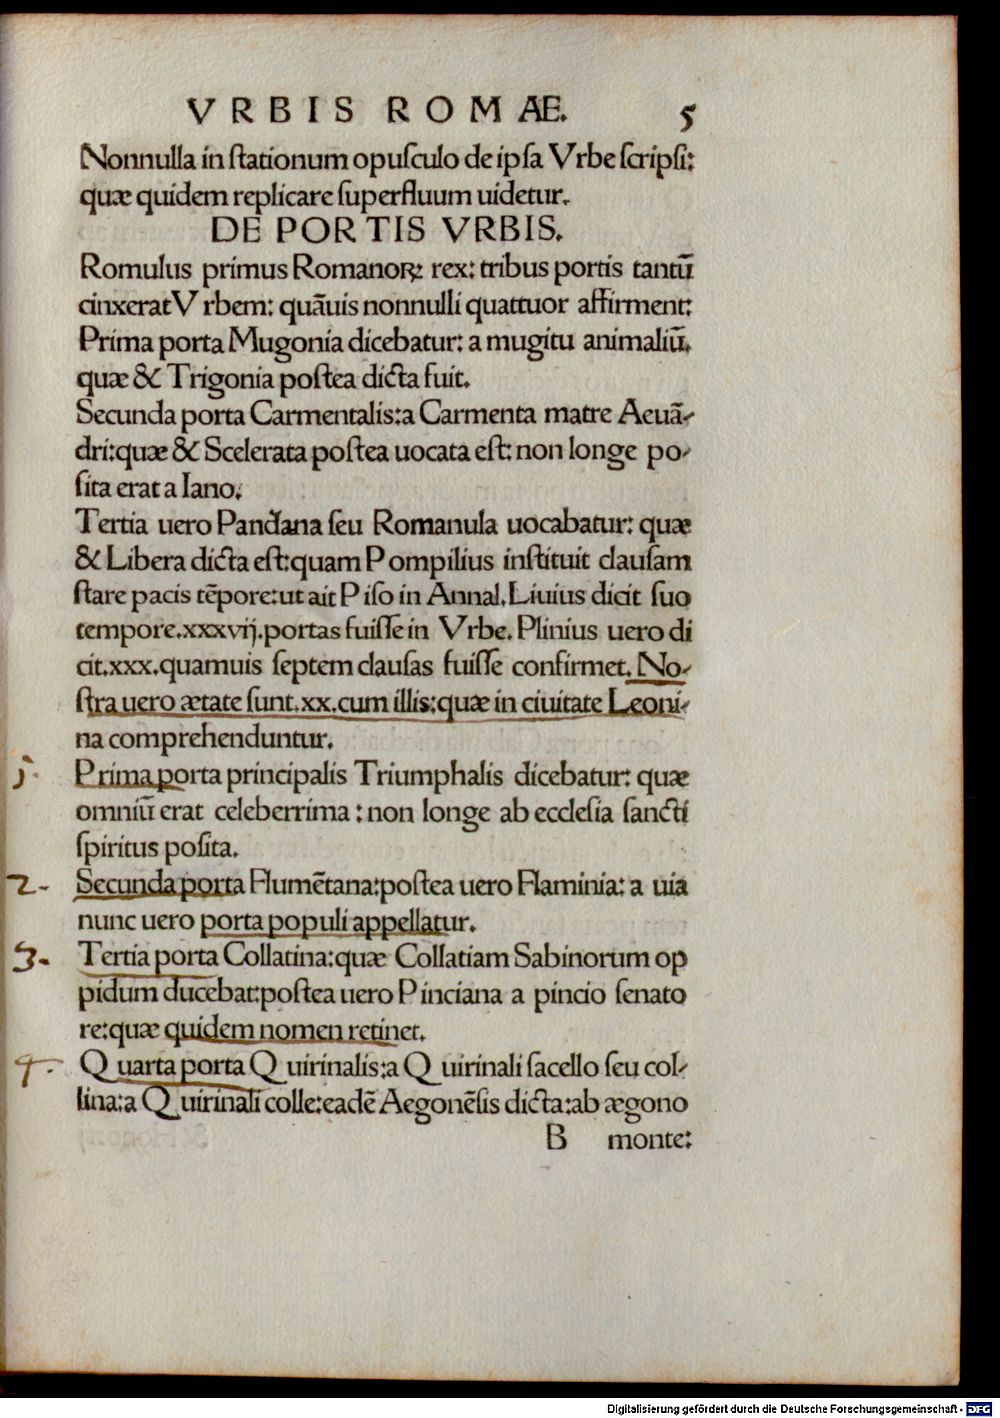 VRBIS ROMAE. 5
Nonnulla in ſtationum opuſculo de ipſa Vrbe ſcripſi:
quæ quidem replicare ſuperfluum uidetur.
DE PORTIS VRBIS.
Romulus primus Romanoꝝ rex: tribus portis tantū
cinxerat Vrbem: quāuis nonnulli quattuor affirment:
Prima porta Mugonia dicebatur: a mugitu animaliū.
quæ & Trigonia poſtea dicta fuit.
Secunda porta Carmentalis: a Carmenta matre Aeuā-
dri: quæ & Scelerata poſtea uocata eſt: non longe po-
ſita erat a Iano.
Tertia uero Pandana ſeu Romanula uocabatur: quæ
& Libera dicta eſt: quam Pompilius inſtituit clauſam
ſtare pacis tēpore: ut ait Piſo in Annal. Liuius dicit ſuo
tempore .xxxvij. portas fuiſſe in Vrbe. Plinius uero di
cit .xxx. quamuis ſeptem clauſas fuiſſe confirmet. No-
ſtra uero ætate ſunt .xx. cum illis: quæ in ciuitate Leoni-
na comprehenduntur.
j. Prima porta principalis Triumphalis dicebatur: quæ
omniū erat celeberrima: non longe ab eccleſia ſancti
ſpiritus poſita.
2. Secunda porta Flumētana: poſtea uero Flaminia: a uia
nunc uero porta populi appellatur.
3. Tertia porta Collatina: quæ Collatiam Sabinorum op
pidum ducebat: poſtea uero Pinciana a pincio ſenato
re: quæ quidem nomen retinet.
4. Quarta porta Quirinalis: a Quirinali ſacello ſeu col-
lina: a Quirinali colle: eadē Aegonēſis dicta: ab ægono
B monte:
Digitalisierung gefördert durch die Deutsche Forschungsgemeinschaft - DFG